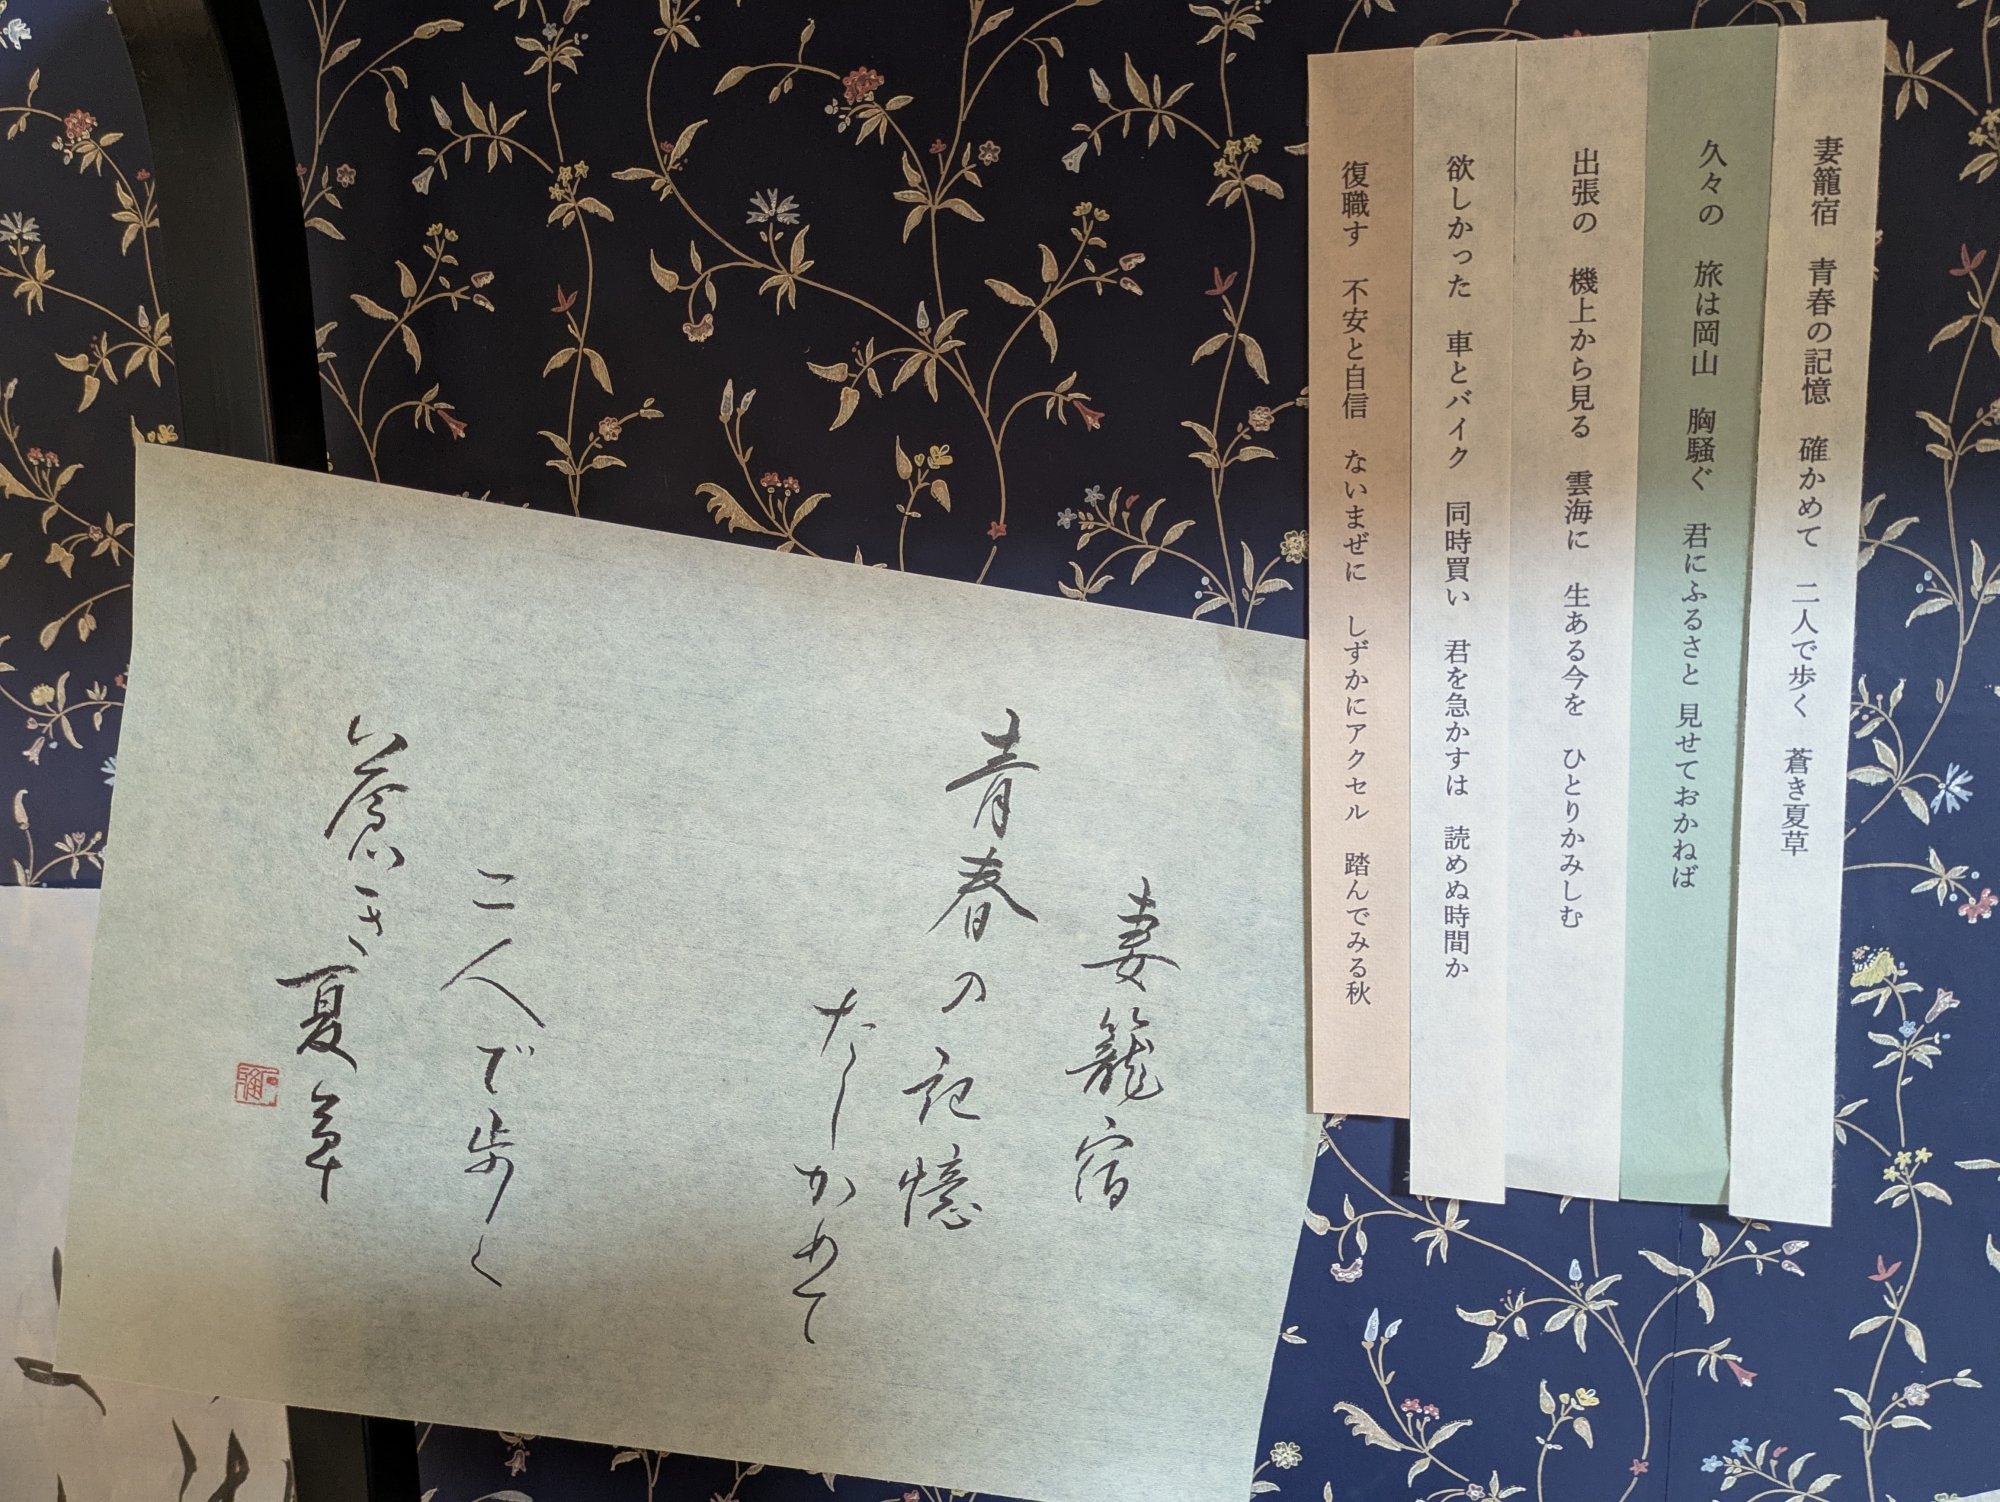 妻籠宿　青春の記憶　確かめて　二人で歩く　蒼き夏草
久々の　旅は岡山　胸騒ぐ　君にふるさと　見せておかねば
出張の　機上から見る　雲海に　生ある今を　ひとりかみしむ
欲しかった　車とバイク　同時買い　君を急かすは　読めぬ時間か
復職す　不安と自信　ないまぜに　しずかにアクセル　踏んでみる秋
妻籠宿
青春の記憶
たしかめて
二人で歩く
蒼き夏草